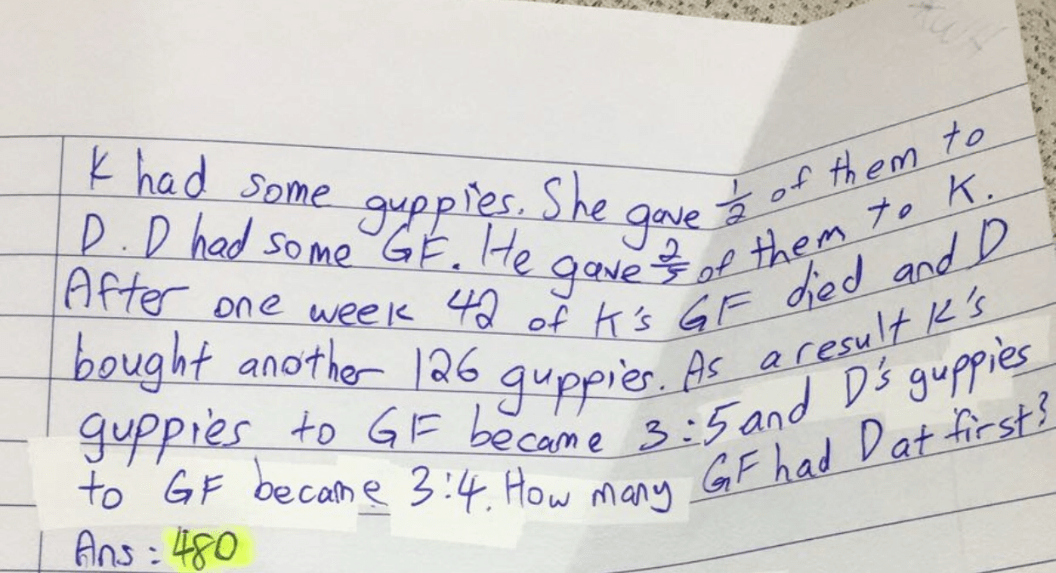 K had some guppies. She gave 1/2 of them to
D. D had some GF. He gave 2/5 of them to K.
After one week 42 of K's GF died and D
bought another 126 guppies. As a result K's
guppies to GF became 3:5 and D's guppies
to GF became 3:4. How many GF had D at first?
Ans: 480